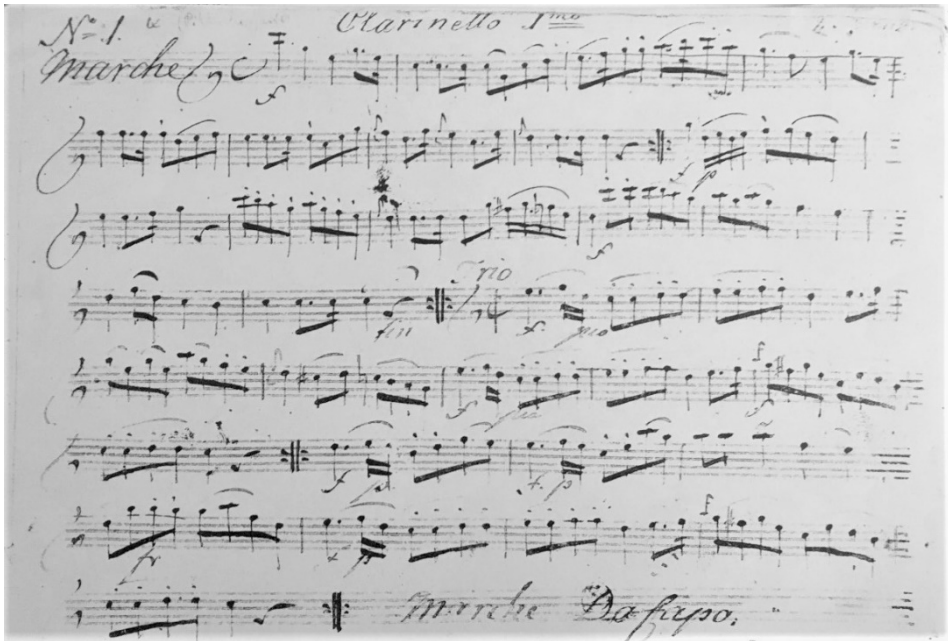 Nº 1. Clarinetto Imo
Marche
f
f p
f
fin
Trio
f pmo
f
f
f p
f. p
f
p
Marche Da Capo.